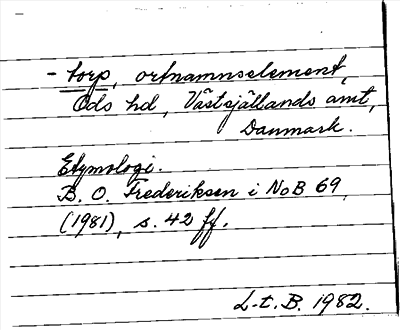 - torp, ortnamnselement,
Ods hd, Västsjällands amt,
Danmark.
Etymologi.
B. O. Frederiksen i NoB 69,
(1981), s. 42 ff.
L.t.B. 1982.